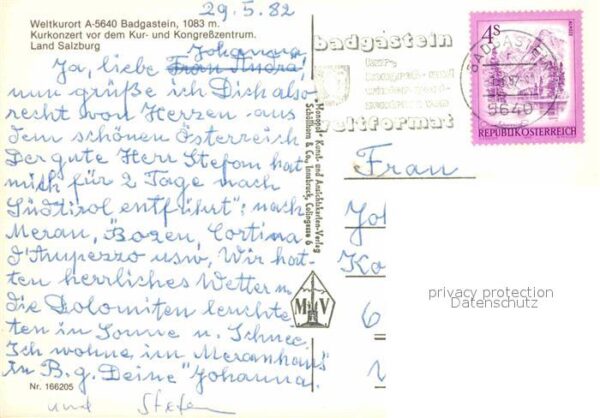 29.5.82
Weltkurort A-5640 Badgastein, 1083 m.
Kurkonzert vor dem Kur- und Kongreßzentrum.
Land Salzburg
Johanna
Ja, liebe Frau Andrä,
nun grüße ich Dich also
recht von Herzen aus
dem schönen Österreich
Der gute Herr Stefan hat
mich für 2 Tage nach
Südtirol "entführt": nach
Meran, Bozen, Cortina
d'Ampezzo usw. Wir hat-
ten herrliches Wetter u.
die Dolomiten leuchte-
ten in Sonne u. Schnee.
Ich wohne im "Meranhaus"
in B.g. Deine Johanna.
und Stefan
Nr. 166205
"Monopol" Kunst- und Ansichtskarten-Verlag
Schöllhorn & Co., Innsbruck, Colingasse 6
M V
badgastein
weltformat
BADGASTEIN
5640
4S
REPUBLIK ÖSTERREICH
Frau
Jo
Ko
6
privacy protection
Datenschutz